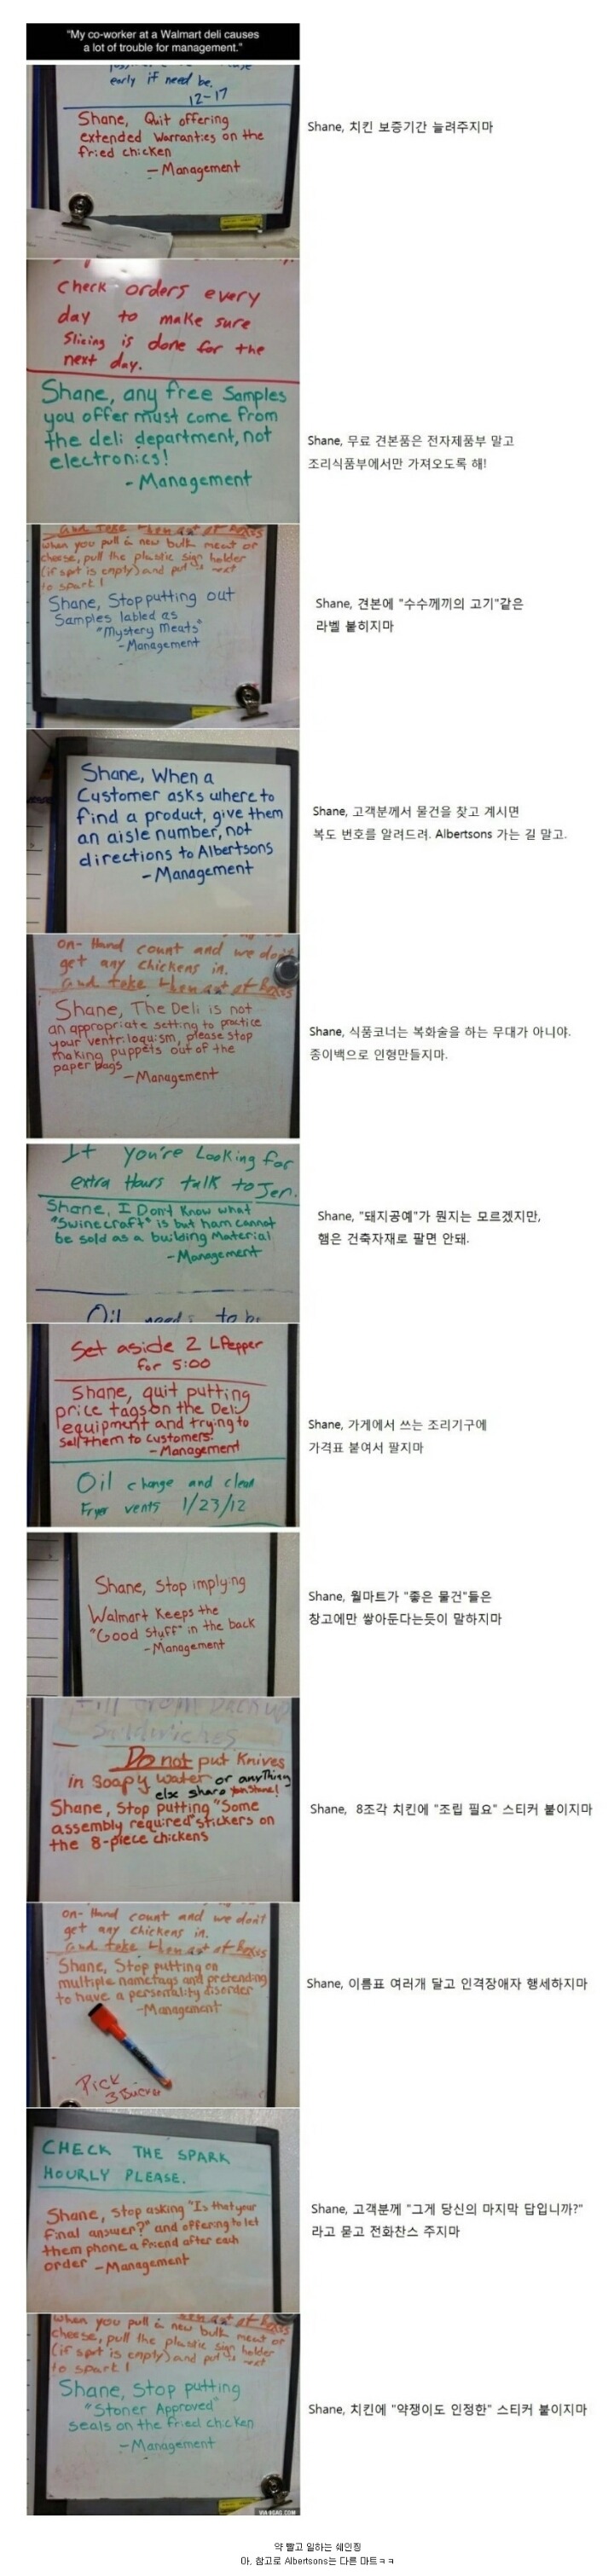 "My co-worker at a Walmart deli causes
a lot of trouble for management."
early if need be.
12-17
Shane, Quit offering
extended Warranties on the
fried chicken
— Management
Shane, 치킨 보증기간 늘려주지마
check orders every
day to make sure
Slicing is done for the
next day.
Shane, any free Samples
you offer must come from
the deli department, not
electronics!
- Management
Shane, 무료 견본품은 전자제품부 말고
조리식품부에서만 가져오도록 해!
and take them out of Boxes
When you pull a new bulk meat or
cheese, pull the plastic sign holder
(if spot is empty) and put is next
to spart!
Shane, Stop putting out
Samples labled as
"Mystery Meats"
-Management
Shane, 견본에 "수수께끼의 고기"같은
라벨 붙히지마
Shane, When a
Customer asks where to
find a product, give them
an aisle number, not
directions to Albertsons
- Management
Shane, 고객분께서 물건을 찾고 계시면
복도 번호를 알려드려. Albertsons 가는 길 말고.
on-Hand count and we don't
get any chickens in.
and take them out of Boxes
Shane, The Deli is not
an appropriate setting to practice
your ventriloquism, please stop
making puppets out of the
paper bags
-Management
Shane, 식품코너는 복화술을 하는 무대가 아니야.
종이백으로 인형만들지마.
If you're Looking for
extra Hours talk to Jen.
Shane, I Don't Know what
"Swinecraft" is but ham cannot
be sold as a building Material
-Management
Oil needs to be
Shane, "돼지공예"가 뭔지는 모르겠지만,
햄은 건축자재로 팔면 안돼.
Set aside 2 LPepper
for 5:00
Shane, quit putting
price tags on the Deli
equipment and trying to
sell them to customers.
- Management
Oil change and clean
Fryer vents 1/23/12
Shane, 가게에서 쓰는 조리기구에
가격표 붙여서 팔지마
Shane, Stop implying
Walmart Keeps the
"Good Stuff" in the back
-Management
Shane, 월마트가 "좋은 물건"들은
창고에만 쌓아둔다는듯이 말하지마
Sandwiches
Do not put Knives
in Soapy water or anything
else sharp
Shane, Stop putting "Some
assembly required" stickers on
the 8-piece chickens
Shane, 8조각 치킨에 "조립 필요" 스티커 붙이지마
on-Hand count and we don't
get any chickens in.
and take them out of Boxes
Shane, Stop putting on
multiple nametags and pretending
to have a personality disorder
-Management
Pick
Shane, 이름표 여러개 달고 인격장애자 행세하지마
CHECK THE SPARK
HOURLY PLEASE.
Shane, stop asking "Is that your
final answer?" and offering to let
them phone a friend after each
order -Management
Shane, 고객분께 "그게 당신의 마지막 답입니까?"
라고 묻고 전화찬스 주지마
When you pull a new bulk meat or
cheese, pull the plastic sign holder
(if spot is empty) and put is next
to spart!
Shane, Stop putting
"Stoner Approved"
seals on the fried chicken
-Management
VIA 9GAG.COM
Shane, 치킨에 "약쟁이도 인정한" 스티커 붙이지마
약 빨고 일하는 쉐인찡
아, 참고로 Albertsons는 다른 마트ㅋㅋ